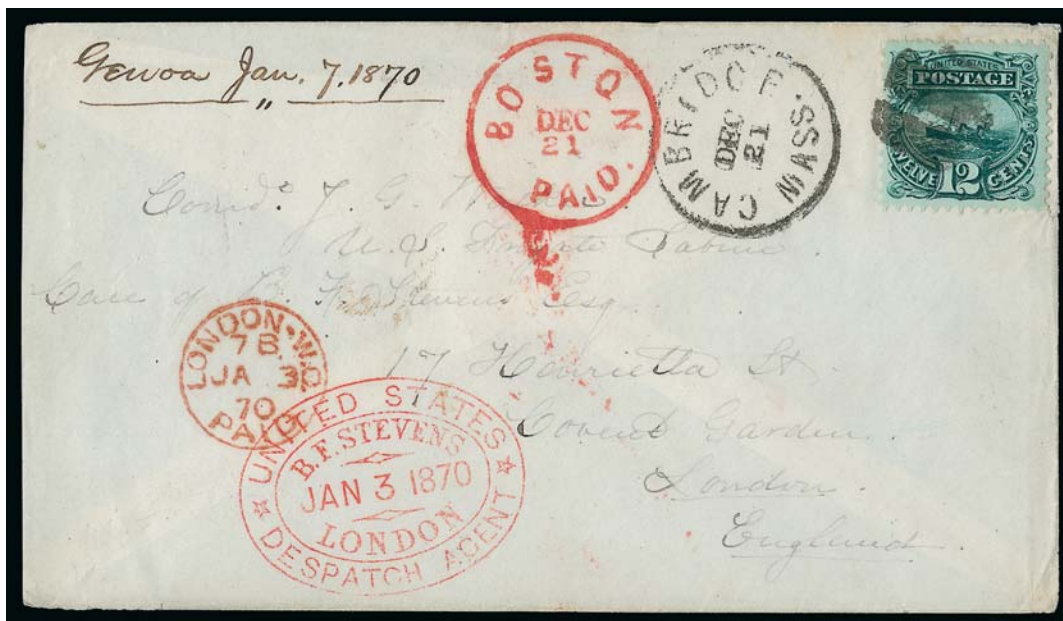 Genoa Jan. 7. 1870
BOSTON
DEC
21
PAID.
CAMBRIDGE MASS.
DEC
21
UNITED STATES
POSTAGE
TWELVE 12 CENTS
Comd.º J. G.
U.S. Sabine
Care of B. F. Stevens Esq.
17 Henrietta St
Covent Garden.
London.
England.
LONDON·W.C
7B
JA 3
70
PAID
UNITED STATES
B.F. STEVENS
JAN 3 1870
LONDON
DESPATCH AGENT